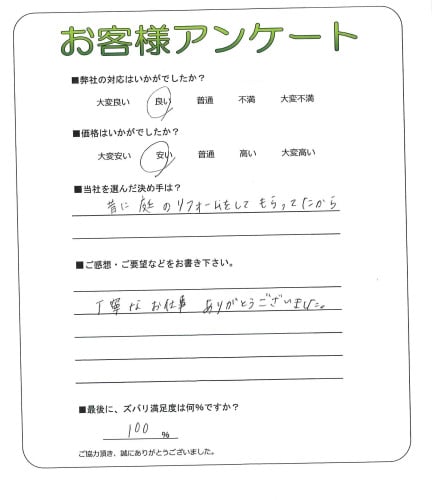 お客様アンケート
■弊社の対応はいかがでしたか？
大変良い 良い 普通 不満 大変不満
■価格はいかがでしたか？
大変安い 安い 普通 高い 大変高い
■当社を選んだ決め手は？
昔に庭のリフォームをしてもらってたから
■ご感想・ご要望などをお書き下さい。
丁寧なお仕事 ありがとうございました。
■最後に、ズバリ満足度は何%ですか？
100 %
ご協力頂き、誠にありがとうございました。